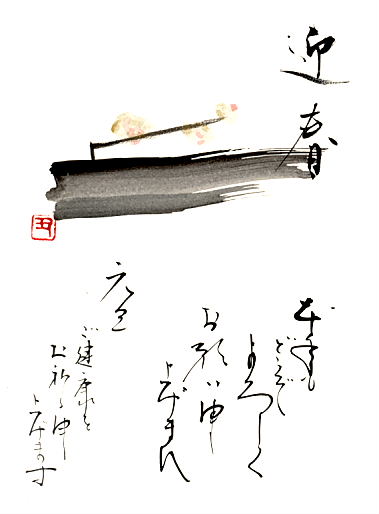 迎春
本年も
どうぞ
よろしく
お願い申
し上げます
元旦
ご健康を
お祈り申
し上げます
丑